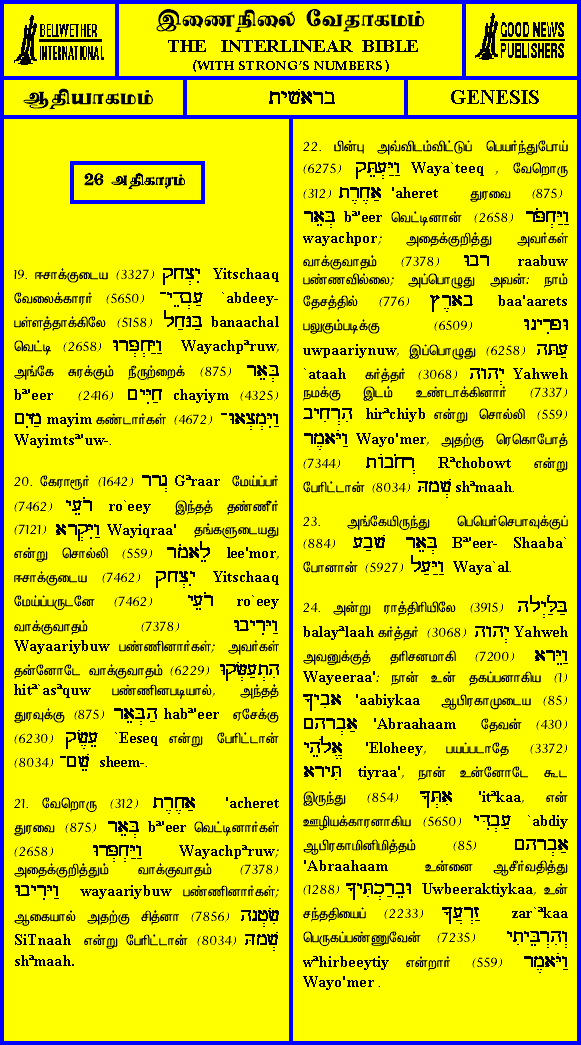 BELLWETHER
INTERNATIONAL
இணைநிலை வேதாகமம்
THE INTERLINEAR BIBLE
(WITH STRONG'S NUMBERS)
GOOD NEWS
PUBLISHERS
ஆதியாகமம்
בראשית
GENESIS
26 அதிகாரம்
19. ஈசாக்குடைய (3327) יִצְחָק Yitschaaq
வேலைக்காரர் (5650) עַבְדֵי־ `abdeey-
பள்ளத்தாக்கிலே (5158) בַּנָּחַל banaachal
வெட்டி (2658) וַיַּחְפְּרוּ Wayachpªruw,
அங்கே சுரக்கும் நீரூற்றைக் (875) בְּאֵר
bª'eer (2416) חַיִּים chayiym (4325)
מַיִם mayim கண்டார்கள் (4672) וַיִּמְצְאוּ־
Wayimtsª'uw-.
20. கேராரூர் (1642) גְרָר Gªraar மேய்ப்பர்
(7462) רֹעֵי ro`eey இந்தத் தண்ணீர்
(7121) וַיִּקְרָא Wayiqraa' தங்களுடையது
என்று சொல்லி (559) לֵאמֹר lee'mor,
ஈசாக்குடைய (7462) יִצְחָק Yitschaaq
மேய்ப்பருடனே (7462) רֹעֵי ro`eey
வாக்குவாதம் (7378) וַיָּרִיבוּ
Wayaariybuw பண்ணினார்கள்; அவர்கள்
தன்னோடே வாக்குவாதம் (6229) הִתְעַשְּׂקוּ
hitª`asªquw பண்ணினபடியால், அந்தத்
துரவுக்கு (875) הַבְּאֵר habª'eer ஏசேக்கு
(6230) עֵשֶׂק `Eeseq என்று பேரிட்டான்
(8034) שֵׁם־ sheem-.
21. வேறொரு (312) אַחֶרֶת 'acheret
துரவை (875) בְּאֵר bª'eer வெட்டினார்கள்
(2658) וַיַּחְפְּרוּ Wayachpªruw;
அதைக்குறித்தும் வாக்குவாதம் (7378)
וַיָּרִיבוּ wayaariybuw பண்ணினார்கள்;
ஆகையால் அதற்கு சித்னா (7856) שִׂטְנָה
SiTnaah என்று பேரிட்டான் (8034) שְׁמָהּ
shªmaah.
22. பின்பு அவ்விடம்விட்டுப் பெயர்ந்துபோய்
(6275) וַיַּעְתֵּק Waya`teeq , வேறொரு
(312) אַחֶרֶת 'aheret துரவை (875)
בְּאֵר bª'eer வெட்டினான் (2658) וַיַּחְפֹּר
wayachpor; அதைக்குறித்து அவர்கள்
வாக்குவாதம் (7378) רבוּ raabuw
பண்ணவில்லை; அப்பொழுது அவன்: நாம்
தேசத்தில் (776) בארֶץ baa'aarets
பலுகும்படிக்கு (6509) וּפרִינוּ
uwpaariynuw, இப்பொழுது (6258) עַתּה
`ataah கர்த்தர் (3068) יְהוה Yahweh
நமக்கு இடம் உண்டாக்கினார் (7337)
הִרְחִיב hirªchiyb என்று சொல்லி (559)
וַיֹּאמֶר Wayo'mer, அதற்கு ரெகொபோத்
(7344) רְחֹבוֹת Rªchobowt என்று
பேரிட்டான் (8034) שְׁמהּ shªmaah.
23. அங்கேயிருந்து பெயெர்செபாவுக்குப்
(884) בְּאֵר שׁבַע Bª'eer- Shaaba`
போனான் (5927) וַיַּעַל Waya`al.
24. அன்று ராத்திரியிலே (3915) בַּלַּיְלה
balayªlaah கர்த்தர் (3068) יְהוה Yahweh
அவனுக்குத் தரிசனமாகி (7200) וַיֵּרא
Wayeeraa': நான் உன் தகப்பனாகிய (1)
אבִיךָ 'aabiykaa ஆபிரகாமுடைய (85)
אַבְרהם 'Abraahaam தேவன் (430)
אֱלֹהֵי 'Eloheey, பயப்படாதே (3372)
תִּירא tiyraa', நான் உன்னோடே கூட
இருந்து (854) אִתְּךָ 'itªkaa, என்
ஊழியக்காரனாகிய (5650) עַבְדִּי `abdiy
ஆபிரகாமினிமித்தம் (85) אַבְרהם
'Abraahaam உன்னை ஆசீர்வதித்து
(1288) וּבֵרַכְתִּיךָ Uwbeeraktiykaa, உன்
சந்ததியைப் (2233) זַרְעֲךָ zar`ªkaa
பெருகப்பண்ணுவேன் (7235) וְהִרְבֵּיתִי
wªhirbeeytiy என்றார் (559) וַיֹּאמֶר
Wayo'mer .